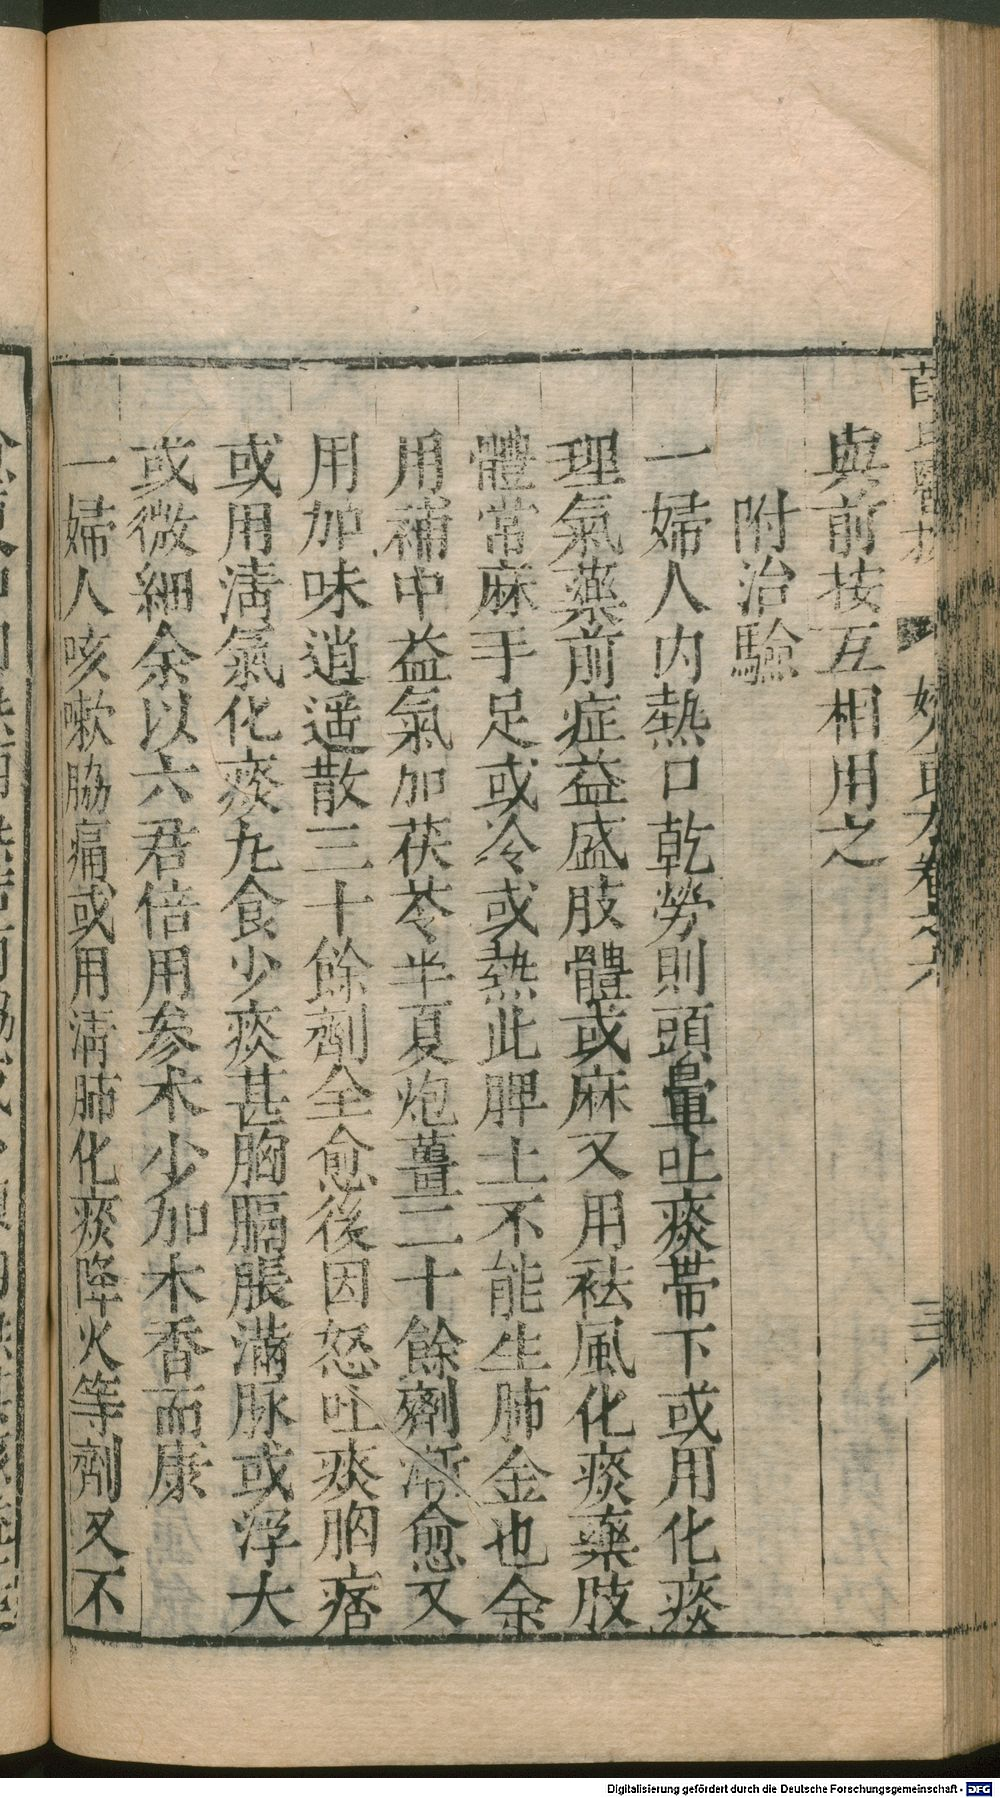 與前按互相用之
附治驗
一婦人内熱口乾勞則頭暈吐痰帶下或用化痰
理氣藥前症益盛肢體或麻又用祛風化痰藥肢
體常麻手足或冷或熱此脾土不能生肺金也余
用補中益氣加茯苓半夏炮薑二十餘劑漸愈又
用加味逍遥散三十餘劑全愈後因怒吐痰胸痞
或用淸氣化痰丸食少痰甚胸膈脹滿脉或浮大
或微細余以六君倍用參术少加木香而康
一婦人咳嗽脇痛或用淸肺化痰降火等劑又不
Digitalisierung gefördert durch die Deutsche Forschungsgemeinschaft - DFG